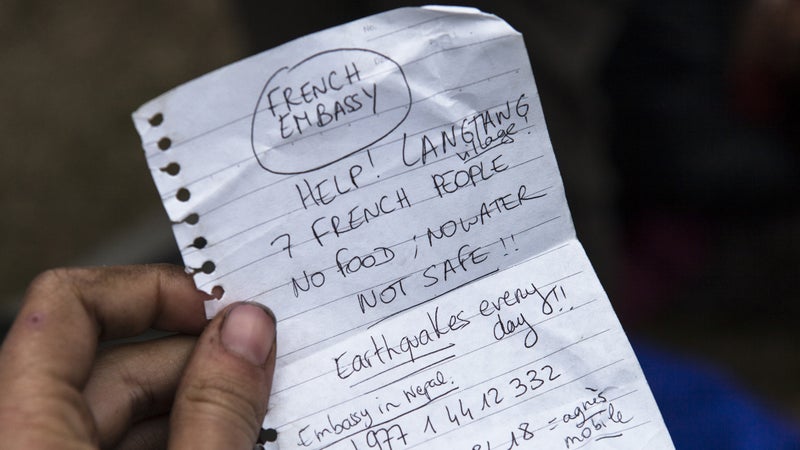 FRENCH
EMBASSY
HELP! LANGTANG
village.
7 FRENCH PEOPLE
NO FOOD ; NO WATER
NOT SAFE !!
Earthquakes every
day !!
Embassy in Nepal.
977 1 44 12 332
18 = agnès
mobile